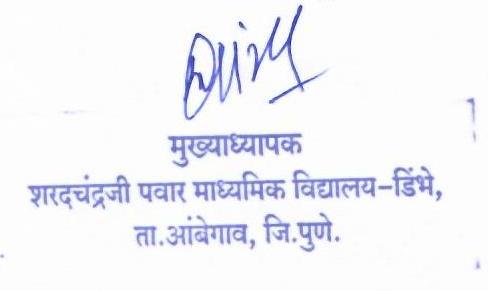 मुख्याध्यापक
शरदचंद्रजी पवार माध्यमिक विद्यालय-डिंभे,
ता.आंबेगाव, जि.पुणे.